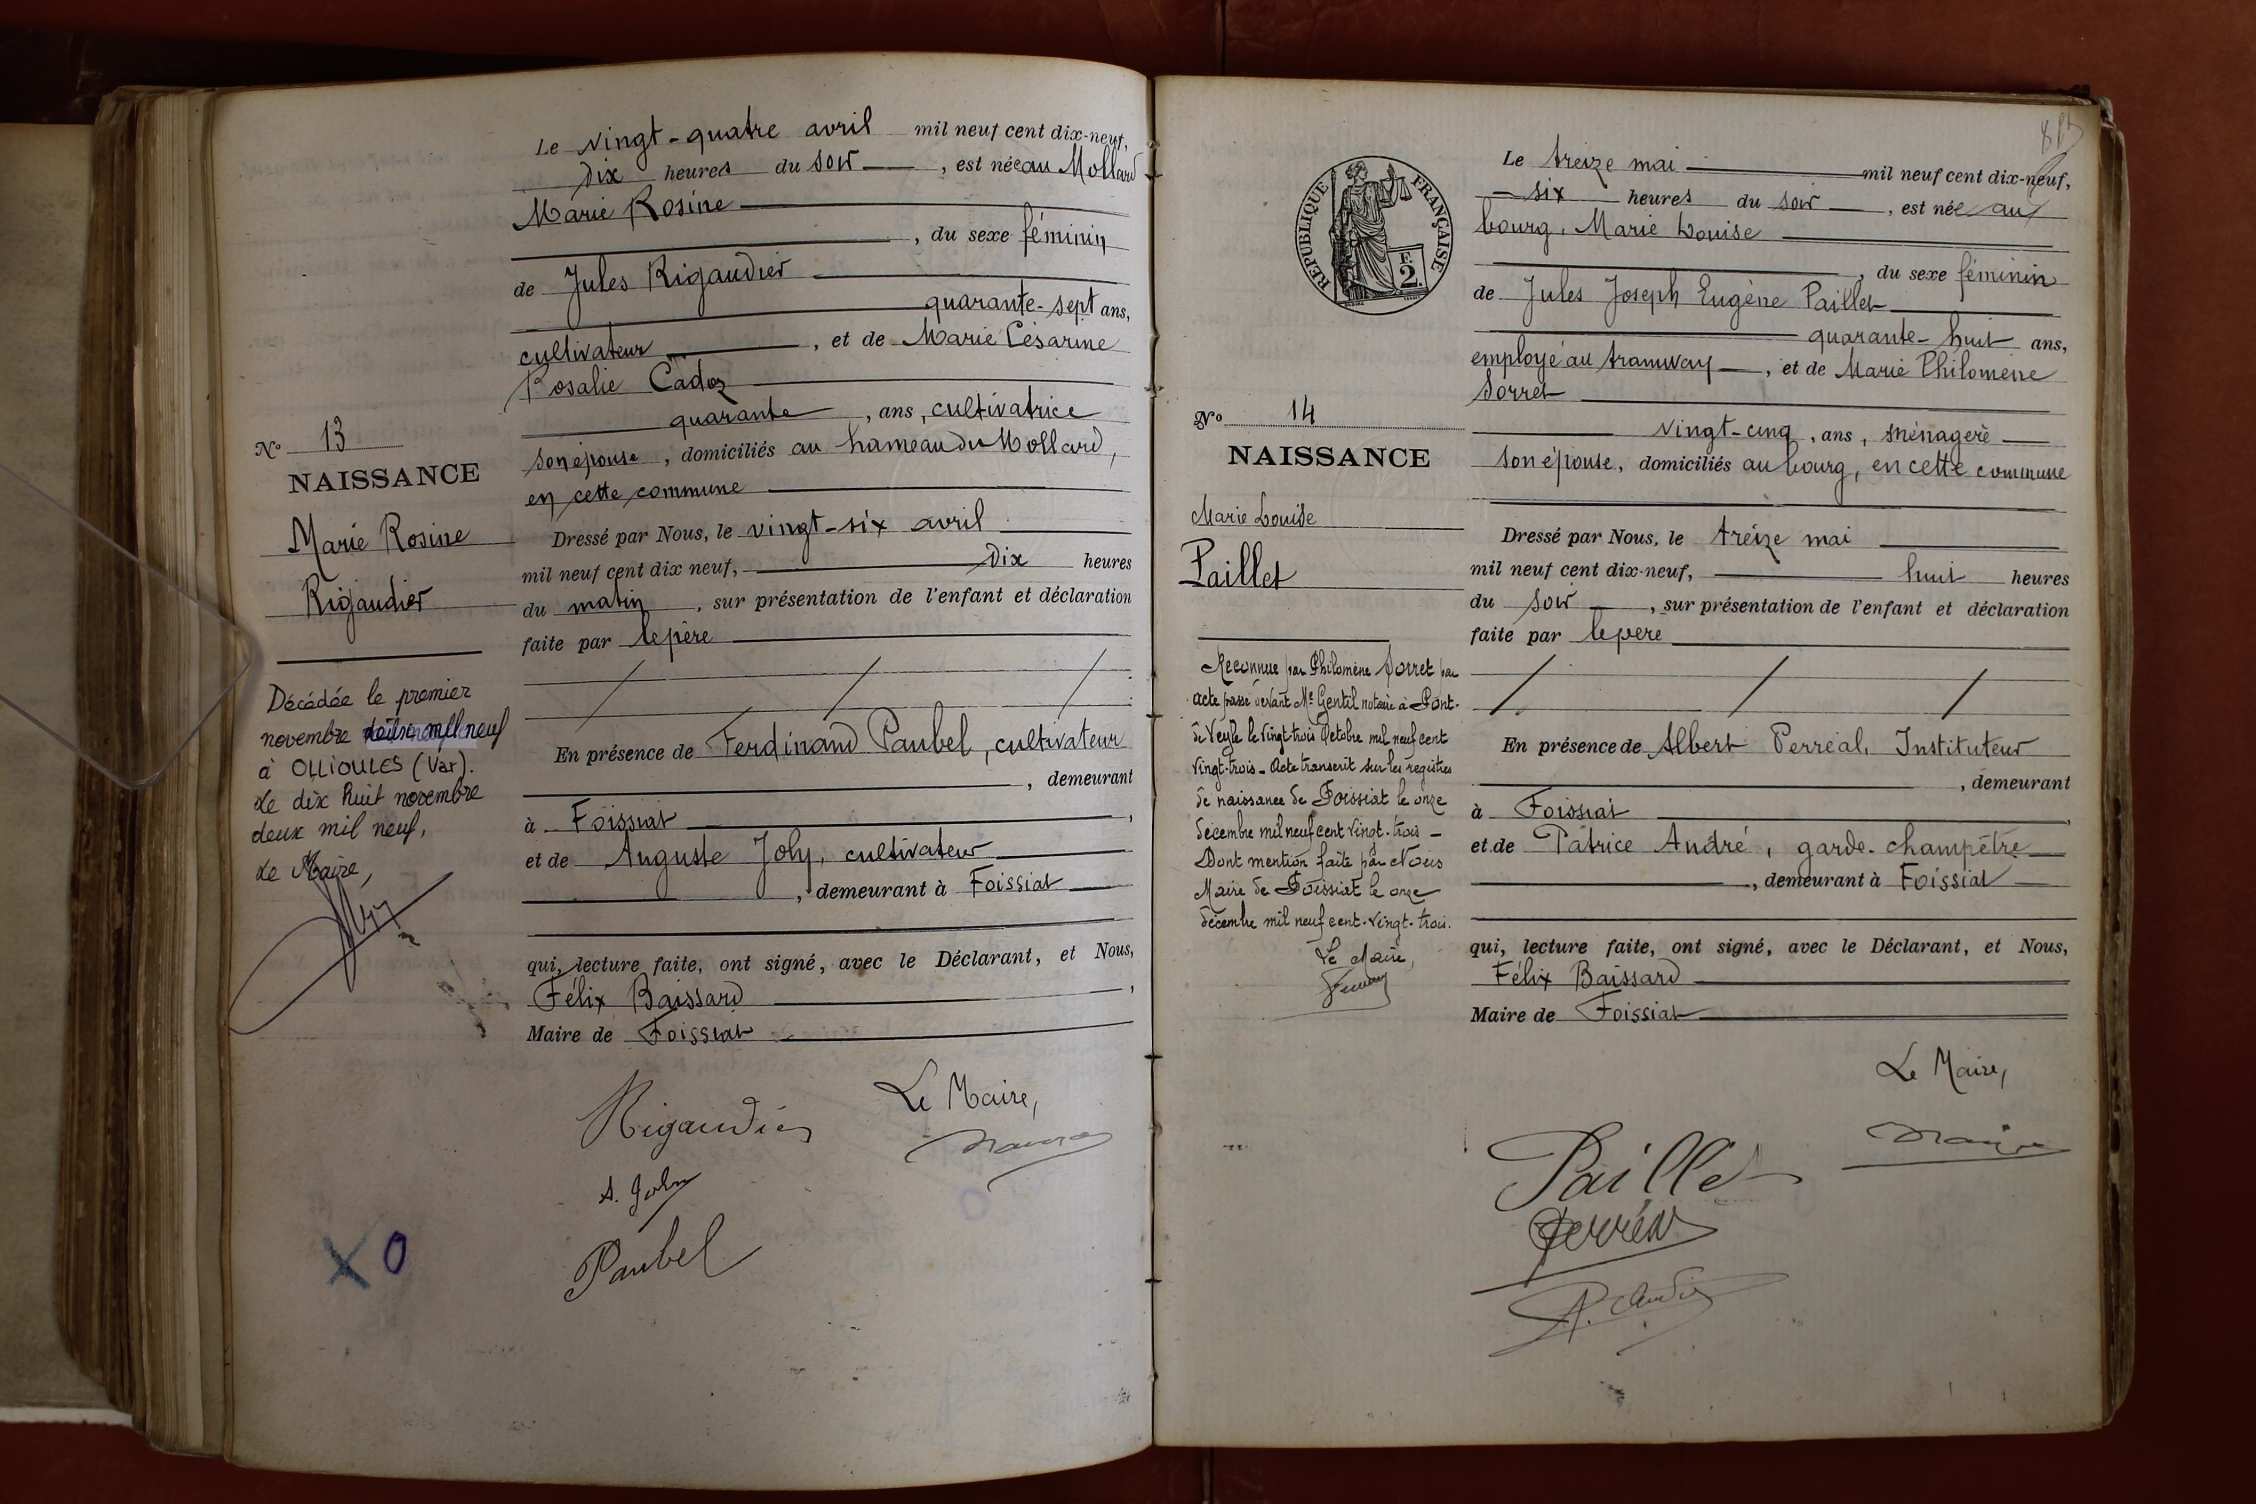 Le vingt-quatre avril mil neuf cent dix-neuf,
dix heures du soir, est née au Mollard
Marie Rosine
, du sexe féminin
de Jules Rigaudier
quarante-sept ans,
cultivateur, et de Marie Césarine
Rosalie Cadoz
quarante, ans, cultivatrice
son épouse, domiciliés au hameau du Mollard,
en cette commune
Dressé par Nous, le vingt-six avril
mil neuf cent dix neuf, dix heures
du matin, sur présentation de l'enfant et déclaration
faite par le père
En présence de Ferdinand Paubel, cultivateur
, demeurant
à Foissiat,
et de Auguste Joly, cultivateur
, demeurant à Foissiat
qui, lecture faite, ont signé, avec le Déclarant, et Nous,
Félix Baissard,
Maire de Foissiat
Le Maire,
Rigaudier
A. Joly
Paubel
No 13
NAISSANCE
Marie Rosine
Rigaudier
Décédée le premier
novembre deux mil neuf
à OLLIOULES (Var).
Le dix huit novembre
deux mil neuf,
Le Maire,
X O
Le treize mai mil neuf cent dix-neuf,
six heures du soir, est née au
bourg, Marie Louise
, du sexe féminin
de Jules Joseph Eugène Paillet
quarante-huit ans,
employé au tramway, et de Marie Philomène
Sorret
vingt-cinq, ans, ménagère
son épouse, domiciliés au bourg, en cette commune
Dressé par Nous, le treize mai
mil neuf cent dix-neuf, huit heures
du soir, sur présentation de l'enfant et déclaration
faite par le père
En présence de Albert Perréal, Instituteur
, demeurant
à Foissiat,
et de Patrice André, garde-champêtre
, demeurant à Foissiat
qui, lecture faite, ont signé, avec le Déclarant, et Nous,
Félix Baissard
Maire de Foissiat
Le Maire,
Paillet
Perréal
P. André
RÉPUBLIQUE FRANÇAISE
F.
2.
No 14
NAISSANCE
Marie Louise
Paillet
Reconnue par Philomène Sorret par
acte passé devant Me Gentil notaire à Pont-
de Veyle le vingt-trois Octobre mil neuf cent
vingt-trois - Acte transcrit sur les registres
de naissance de Foissiat le onze
décembre mil neuf cent vingt-trois -
Dont mention faite par Nous
Maire de Foissiat le onze
décembre mil neuf cent-vingt-trois.
Le Maire,